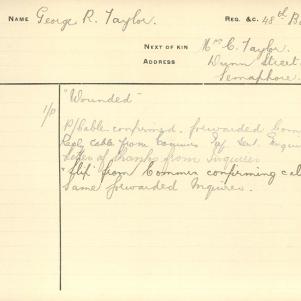 NAME George R. Taylor. REG. &C. 48th B
NEXT OF KIN Mrs C. Taylor.
ADDRESS Dunn Street
Semaphore.
"Wounded"
1/P P/Cable confirmed. forwarded Com
Reply cable from Enquiries
Letter of thanks from Inquirer
from Commrs confirming cal
Same forwarded Inquirer.